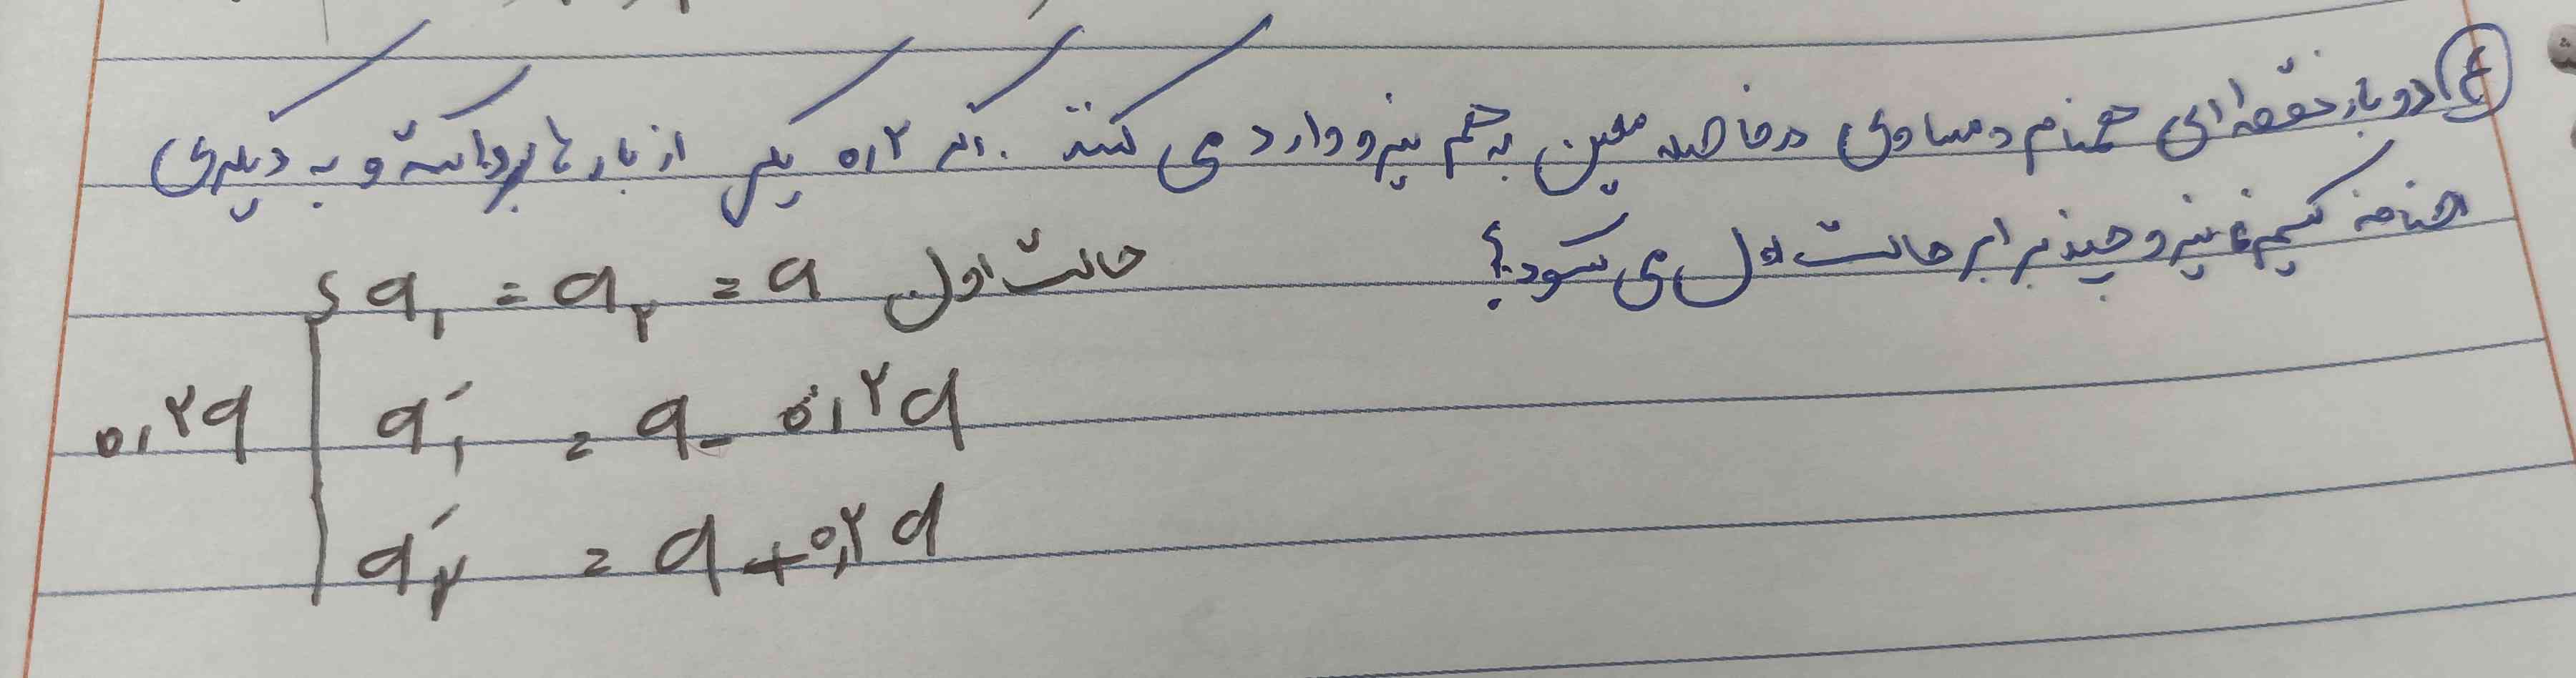 ۴) دو بار نقطه ای همنام و مساوی در فاصله معین به هم نیرو وارد می کنند . اگر ۰٫۲ یکی از بار ها برداشته و به دیگری
اضافه کنیم نیرو چند برابر حالت اول می شود ؟
حالت اول q₁ = q₂ = q
۰٫۲q q′₁ = q - ۰٫۲q
q′₂ = q + ۰٫۲q